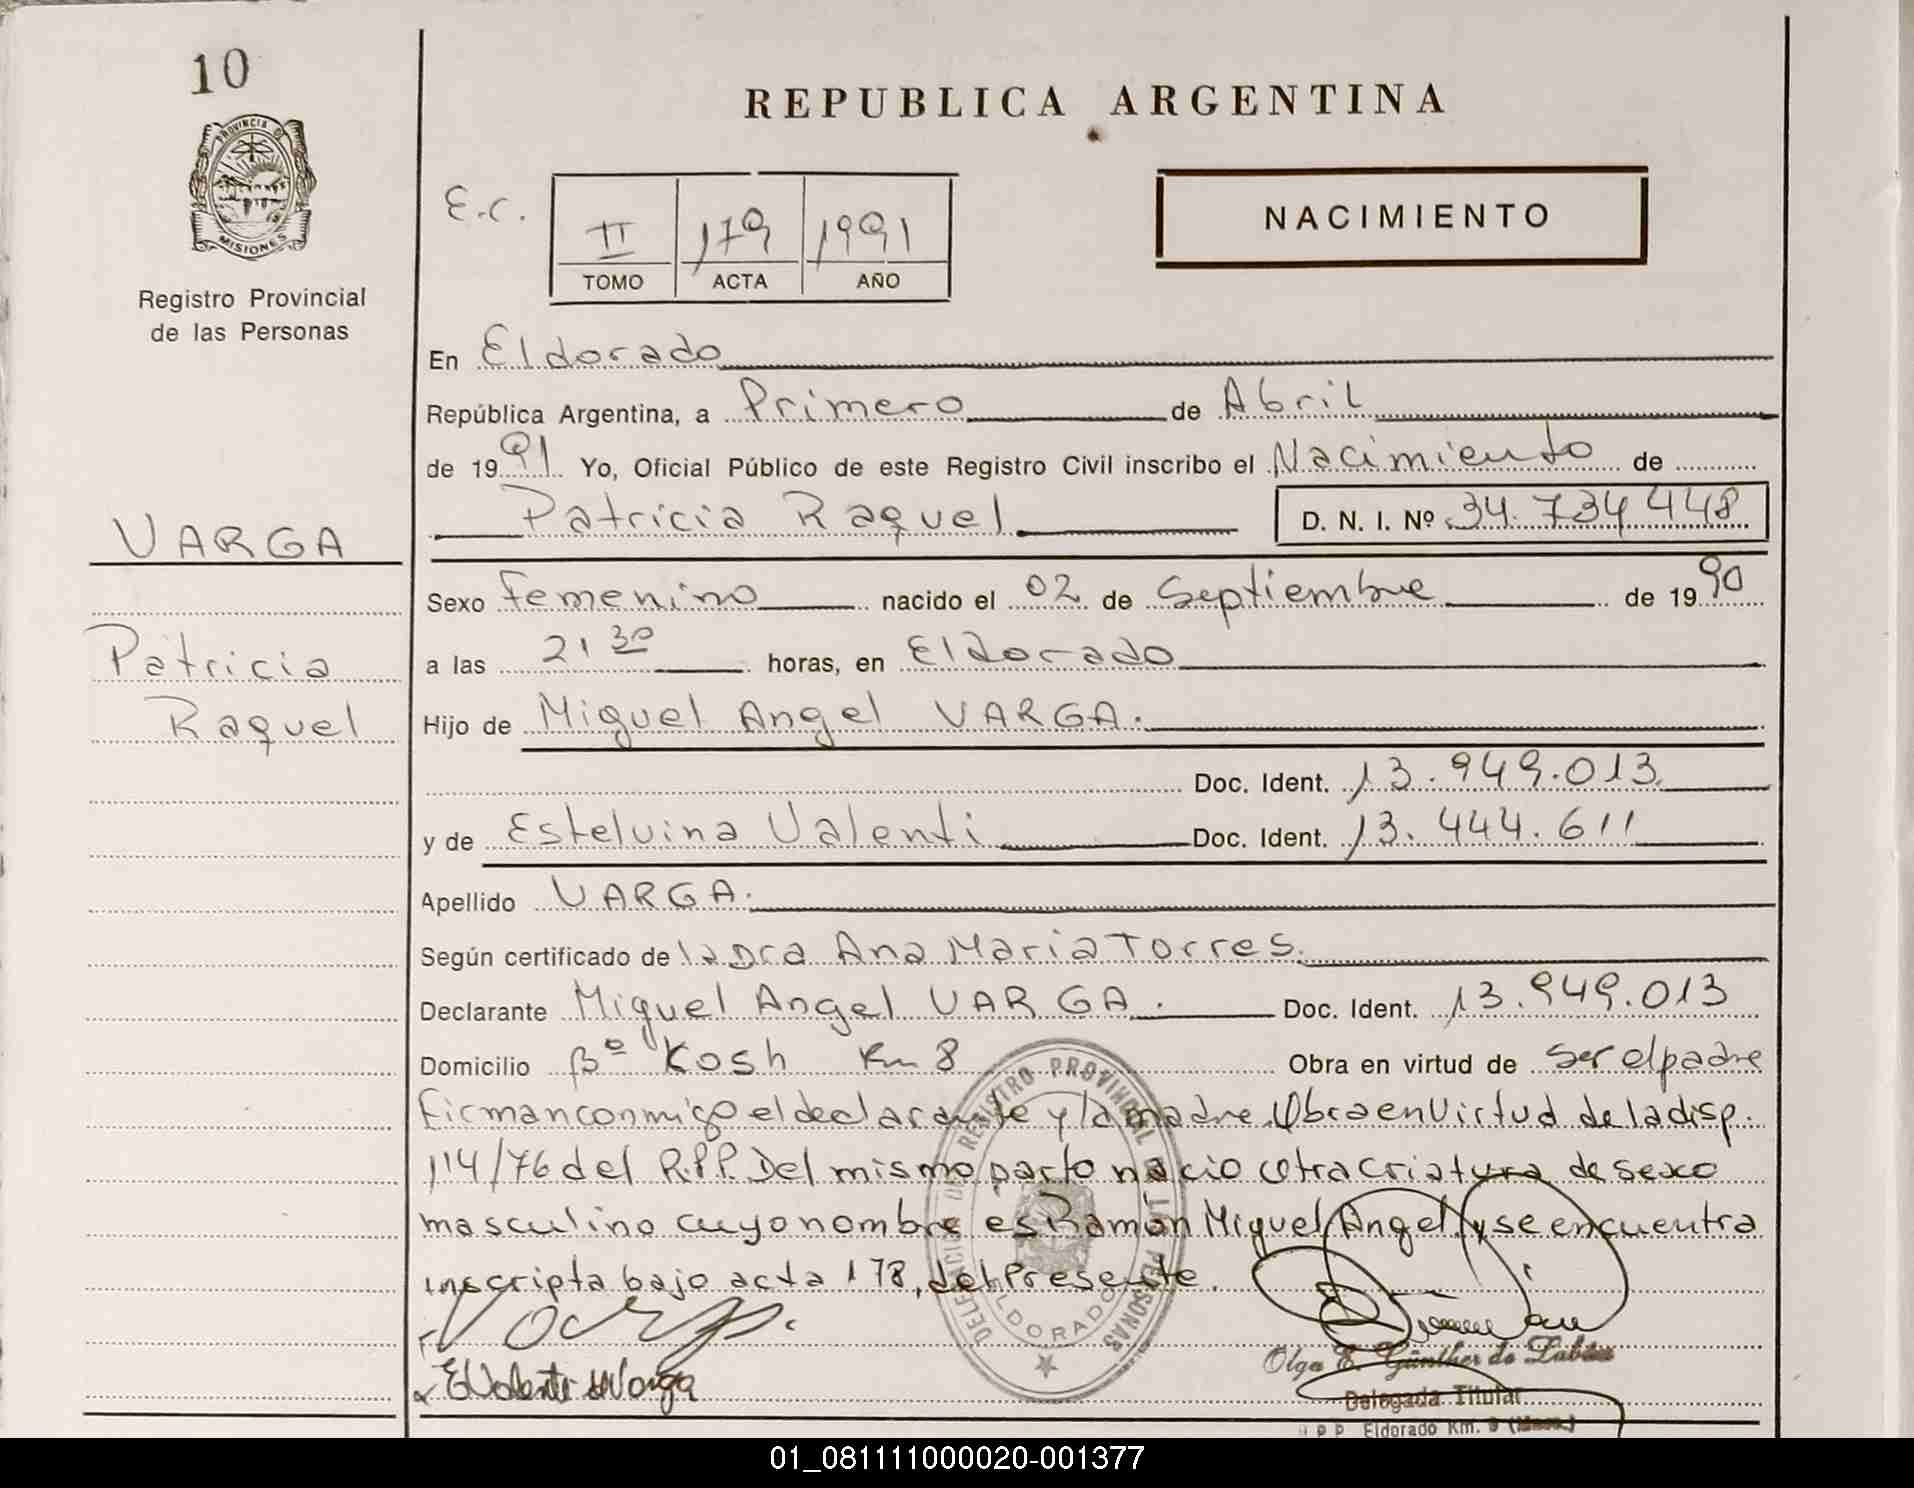 10
PROVINCIA DE
MISIONES
Registro Provincial
de las Personas
VARGA
Patricia
Raquel
REPUBLICA ARGENTINA
E.C.
II 179 1991
TOMO ACTA AÑO
NACIMIENTO
En Eldorado
República Argentina, a Primero de Abril
de 1991 Yo, Oficial Público de este Registro Civil inscribo el Nacimiento de
Patricia Raquel D. N. I. Nº 34.734448
Sexo femenino nacido el 02 de Septiembre de 1990
a las 21 30 horas, en Eldorado
Hijo de Miguel Angel VARGA.
Doc. Ident. 13.949.013
y de Estelvina Valenti Doc. Ident. 13.444.611
Apellido VARGA.
Según certificado de la Dra Ana Maria Torres.
Declarante Miguel Angel VARGA. Doc. Ident. 13.949.013
Domicilio Bº Kosh Km 8 Obra en virtud de ser el padre
firman conmigo el declarante y la madre. Obra en Virtud de la disp.
114/76 del R.P.P. Del mismo parto nacio otra criatura de sexo
masculino cuyo nombre es Ramon Miguel Angel y se encuentra
inscripta bajo acta 178, del Presente.
DELEGACION DEL REGISTRO PROVINCIAL DE LAS PERSONAS
ELDORADO
E Valenti de Varga
Olga E. Günther de
Delegada Titular
R P P Eldorado Km. 9
01_081111000020-001377